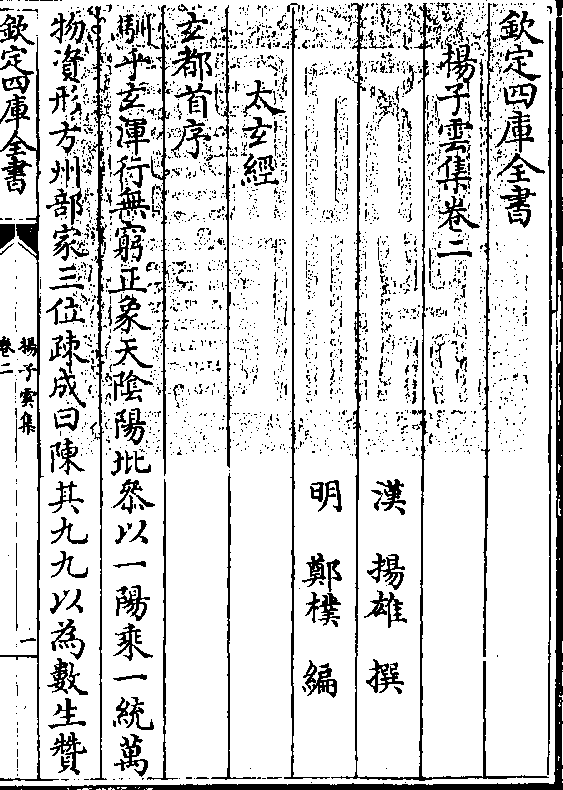 欽定四庫全書
揚子雲集卷二
漢 揚雄 撰
明 鄭樸 編
太玄經
玄都首序
馴乎玄渾行無窮正象天陰陽𡉏參以一陽乘一統萬
物資形方州部家三位疎成曰陳其九九以為數生贊
欽定四庫全書
揚子雲集
卷二
一